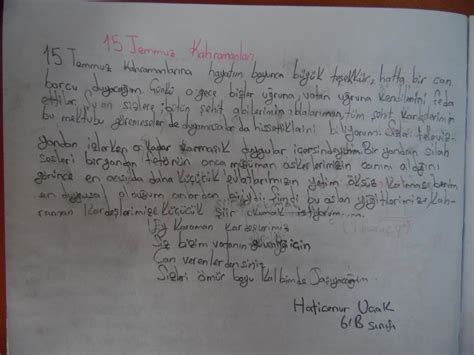 15 Temmuz Kahramanları
15 Temmuz Kahramanlarına hayatım boyunca büyük teşekkür, hatta bir can
borcu duyacağım. Çünkü o gece bizler uğruna, vatan uğruna kendilerini feda
ettiler, bütün şehit abilerimin, ablalarımın, tüm şehit
bu mektubu göremeseler de duymasalar da hissettiklerini biliyorum. Sizleri
izlerken o kadar karmaşık duygular içersindeydim. Bir yandan silah
sesleri bir yandan terörün onca masum askerlerimizin canını aldığını
görünce en onsıda daha küçücük evlatlarımızın yetim öksüz kalması benim
en duygusal olduğum onlardan biriydi. Şimdi bu aslan yiğitlerimize kah-
raman kardeşlerimize küçücük şiir okumak istiyorum....
Ey Kahraman Kardeşlerimiz
Siz bizim vatanın güvenliği için
Can verenlerdensiniz
Sizleri ömür boyu kalbimde taşıyacağım.
Haticenur Uçak
6/B sınıfı